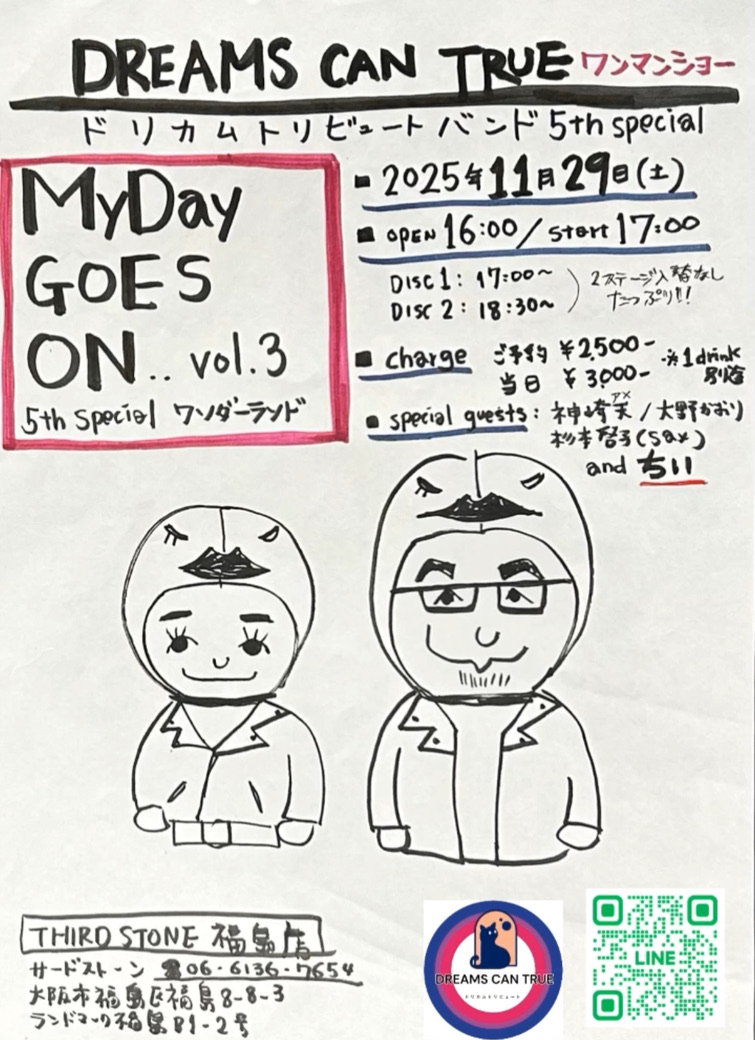 DREAMS CAN TRUE ワンマンショー
ドリカムトリビュートバンド 5th special
MyDay
GOES
ON.. vol.3
5th Special ワンダーランド
■ 2025年11月29日(土)
■ OPEN 16:00/start 17:00
DISC 1: 17:00~
DISC 2: 18:30~
2ステージ入替なし
たっぷり!!
■ charge ご予約 ¥2,500-
当日 ¥3,000-
※1drink
別途
■ special guests: 神崎天/大野かおり
アメ
杉本啓子(sax)
and ちい
THIRD STONE 福島店
サードストーン ☎06-6136-7654
大阪市福島区福島8-8-3
ランドマーク福島B1-2号
DREAMS CAN TRUE
ドリカムトリビュート
LINE